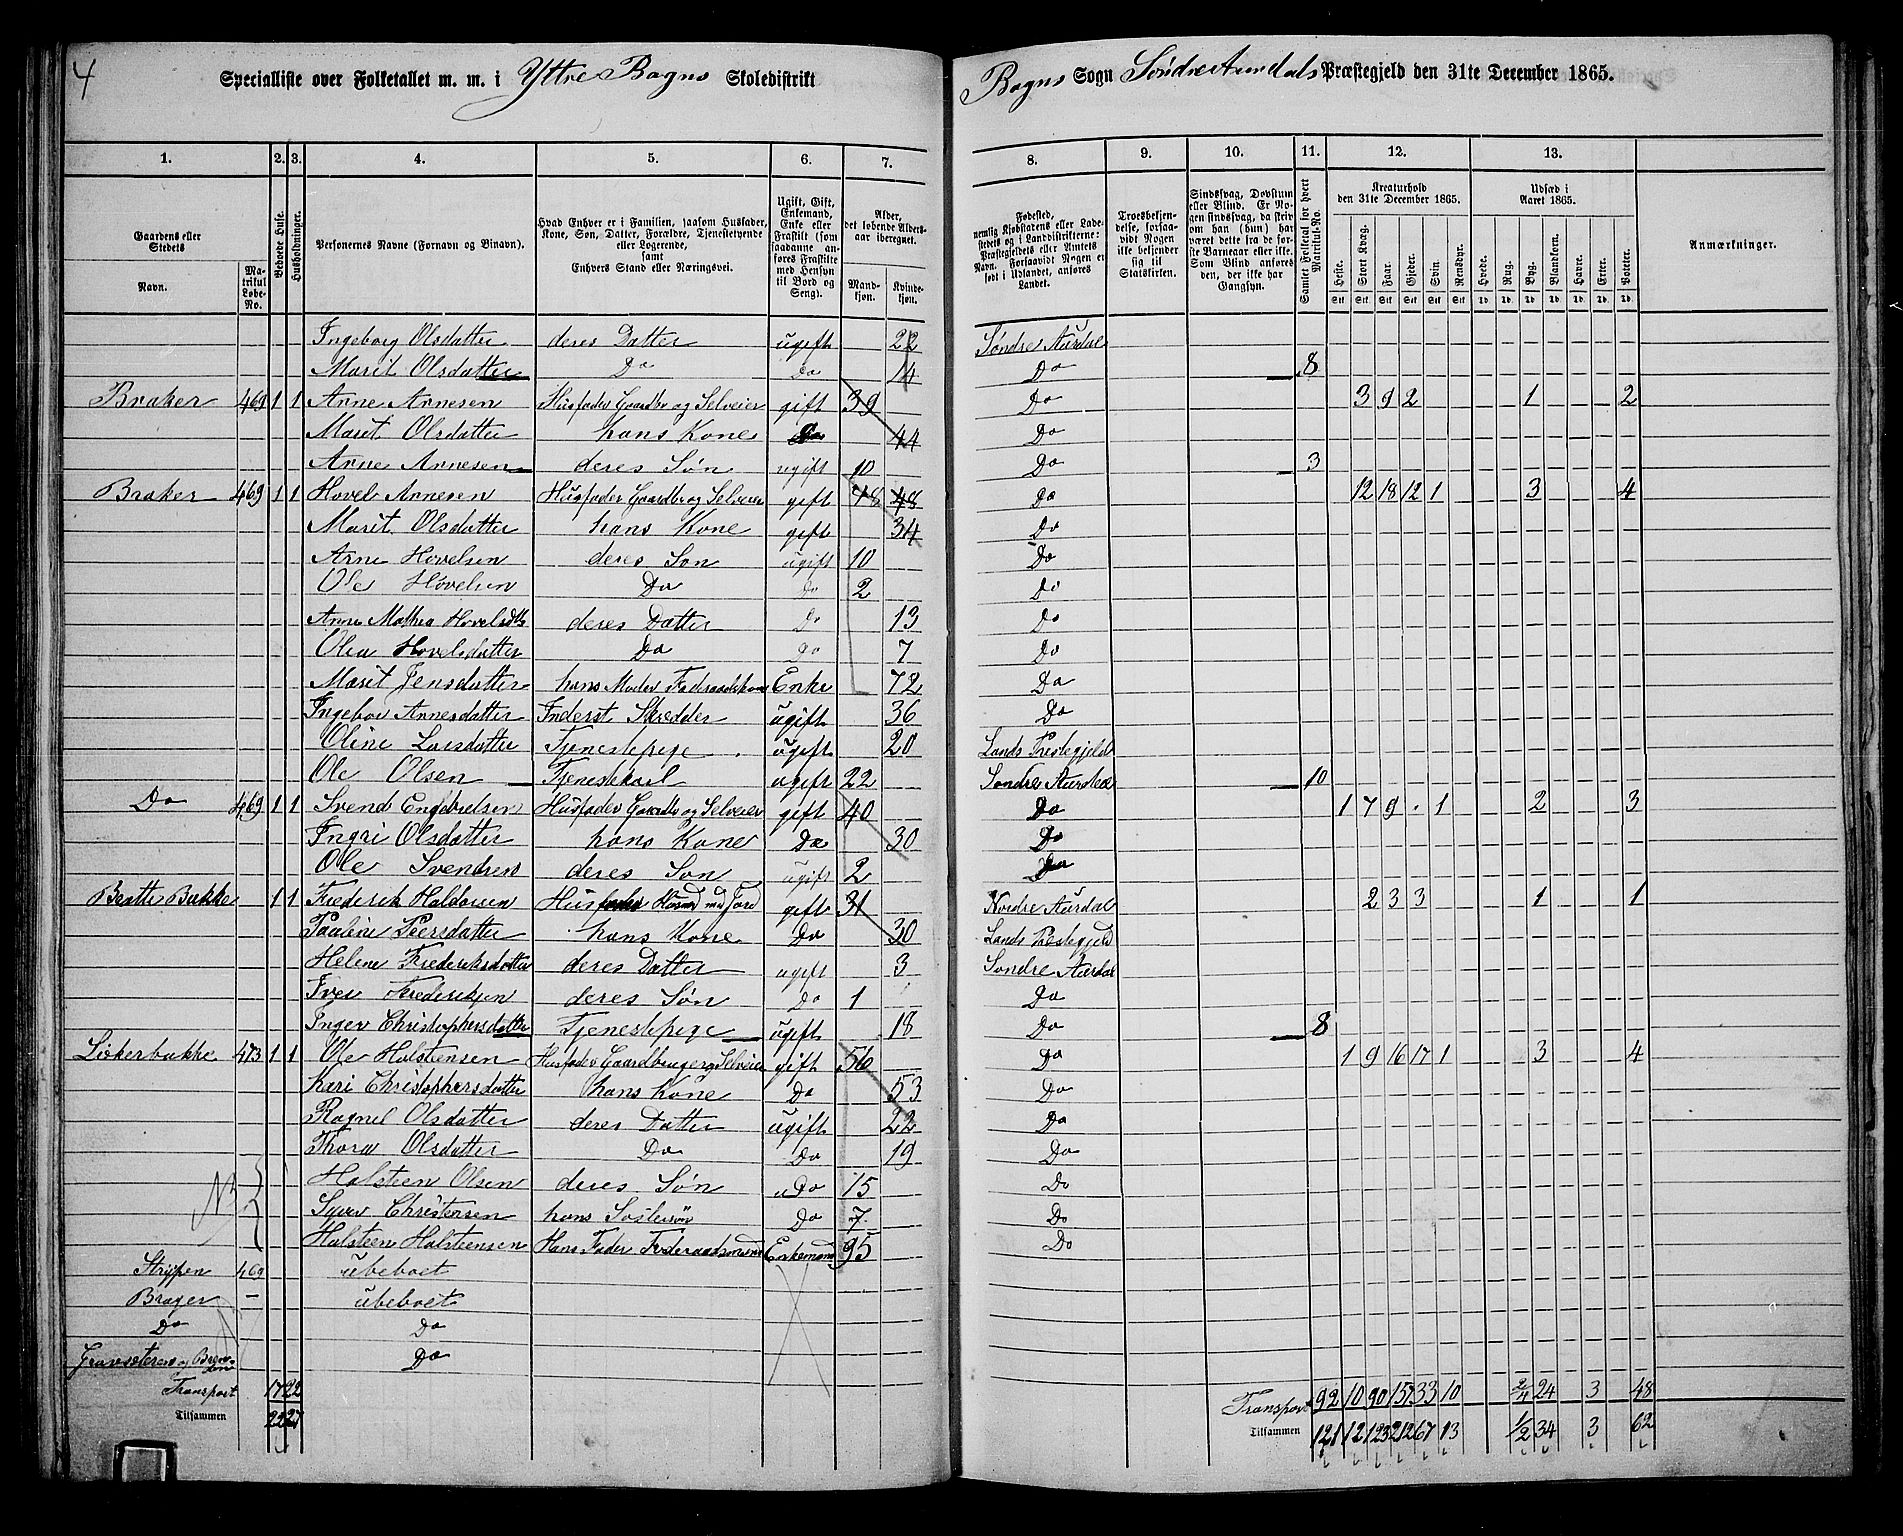 4
Specialliste over Folketallet m. m. i Yttre Bagns Skoledistrikt
Bagns Sogn Søndre Aurdals Præstegjeld den 31te December 1865.
1. 2. 3. 4. 5. 6. 7. 8. 9. 10. 11. 12. 13.
Gaardens eller Stedets
Navn. Matrikul Løbe-No.
Beboede Huse.
Husholdninger.
Personernes Navne (Fornavn og Binavn).
Hvad Enhver er i Familien, saasom Husfader, Kone, Søn, Datter, Forældre, Tjenestetyende eller Logerende, samt Enhvers Stand eller Næringsvei.
Ugift, Gift, Enkemand, Enke eller Fraskilt (som saadanne anføres Fraskilte med Hensyn til Bord og Seng).
Alder, det løbende Aldersaar iberegnet.
Mandkjøn. Kvindekjøn.
Fødested, nemlig Kjøbstadens eller Ladestedets og i Landdistrikterne: Præstegjeldets eller Amtets Navn. Forsaavidt Nogen er født i Udlandet, anføres Landet.
Troesbekjendelse, forsaavidt Nogen ikke bekjender sig til Statskirken.
Sindssvag, Døvstum eller Blind. Er Nogen sindssvag, da skrives om han (hun) har været dette fra de første Barneaar eller ikke. Som Blind anføres den, der ikke har Gangsyn.
Samlet Folketal for hvert Matrikul-No.
Kreaturhold den 31te December 1865.
Heste. Stort Kvæg. Faar. Gjeder. Svin. Rensdyr.
Udsæd i Aaret 1865.
Hvede. Rug. Byg. Blandkorn. Havre. Erter. Poteter.
Anmærkninger.
Ingeborg Olsdatter deres Datter ugift 22 Søndre Aurdal
Marit Olsdatter Do Do 14 Do 8
Braker 469 1 1 Arne Arnesen Husfader Gaardbr og Selveier gift 39 Do 3 9 2 1 2
Marit Olsdatter hans Kone Do 44 Do
Arne Arnesen deres Søn ugift 10 Do 3
Braker 469 1 1 Hovel Arnesen Husfader Gaardbr og Selveier gift 48 48 Do 12 18 12 1 3 4
Marit Olsdatter hans Kone gift 34 Do
Arne Hovelsen deres Søn ugift 10 Do
Ole Hovelsen Do Do 2 Do
Anne Mathea Hovelsdtr deres Datter Do 13 Do
Olea Hovelsdatter Do Do 7 Do
Marit Jensdatter hans Moder Føderaadskone Enke 72 Do
Ingebor Arnesdatter Inderst Skredder ugift 36 Do
Oline Larsdatter Tjenestepige ugift 20 Lands Prestegjeld
Ole Olsen Tjenestekarl ugift 22 Søndre Aurdal 10
Do 469 1 1 Svend Engebretsen Husfader Gaardbr og Selveier gift 40 Do 1 7 9 1 2 3
Ingri Olsdatter hans Kone Do 30 Do
Ole Svendsen deres Søn ugift 2 Do
Bratte Bakke 1 1 Frederik Haldorsen Husfader Husmd med Jord gift 31 Nordre Aurdal 2 3 3 1 1
Pauline Peersdatter hans Kone Do 30 Lands Prestegjeld
Helene Frederiksdatter deres Datter ugift 3 Søndre Aurdal
Iver Frederiksen deres Søn Do 1 Do
Inger Christophersdatter Tjenestepige ugift 18 Do 8
Liekerbakke 473 1 1 Ole Halsteensen Husfader Gaardbruger og Selveier gift 56 Do 1 9 16 17 1 3 4
Kari Christophersdatter hans Kone Do 53 Do
Ragnel Olsdatter deres Datter ugift 22 Do
Thora Olsdatter Do Do 19 Do
Halsteen Olsen deres Søn Do 15 Do
NB Syver Christensen hans Søstersøn Do 7 Do
Halsteen Halsteensen Hans Fader Føderaadsmand Enkemand 95 Do
Strypen 469 ubeboet
Brager — ubeboet
Do Do
Do
Transport 17 22 Transport 92 10 90 157 33 10 2/4 24 3 48
Tilsammen 22 27 Tilsammen 121 12 123 212 67 13 1/2 34 3 62